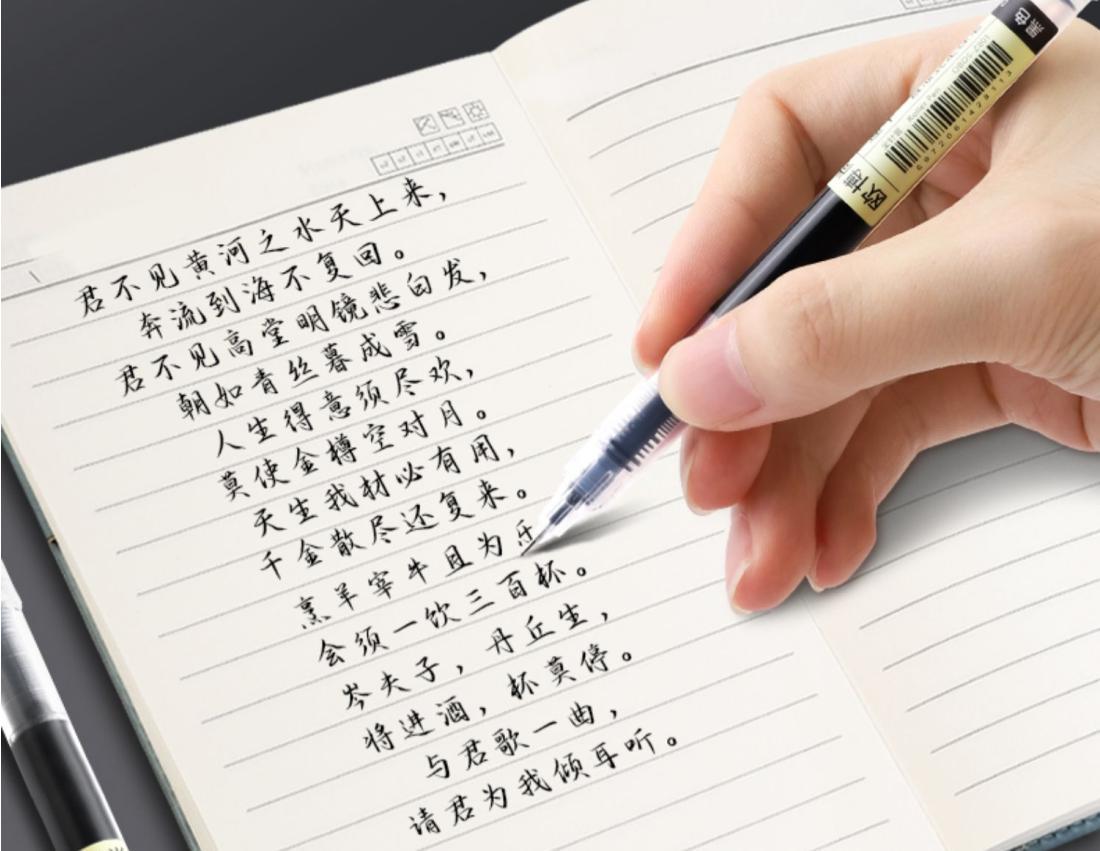 君不见黄河之水天上来，
奔流到海不复回。
君不见高堂明镜悲白发，
朝如青丝暮成雪。
人生得意须尽欢，
莫使金樽空对月。
天生我材必有用，
千金散尽还复来。
烹羊宰牛且为乐
会须一饮三百杯。
岑夫子，丹丘生，
将进酒，杯莫停。
与君歌一曲，
请君为我倾耳听。
黑色
6972061429113